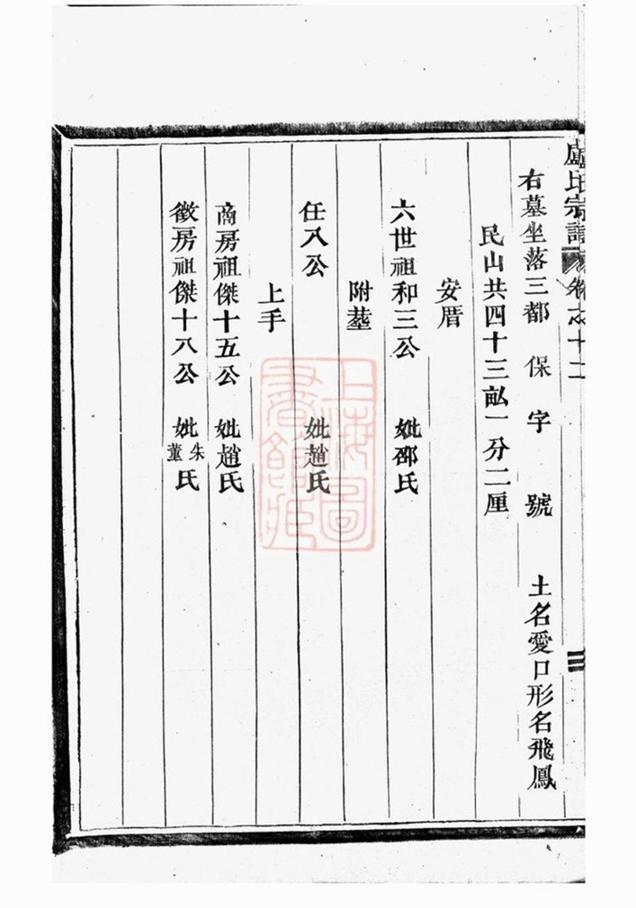 盧氏宗譜 卷之十二
右墓坐落三都 保 字 號 土名愛口形名飛鳳
民山共四十三畝一分二厘
安厝
六世祖和三公 妣邵氏
附塟
任八公 妣趙氏
上手
商房祖傑十五公 妣趙氏
徵房祖傑十八公 妣朱董氏
上海圖
書館藏